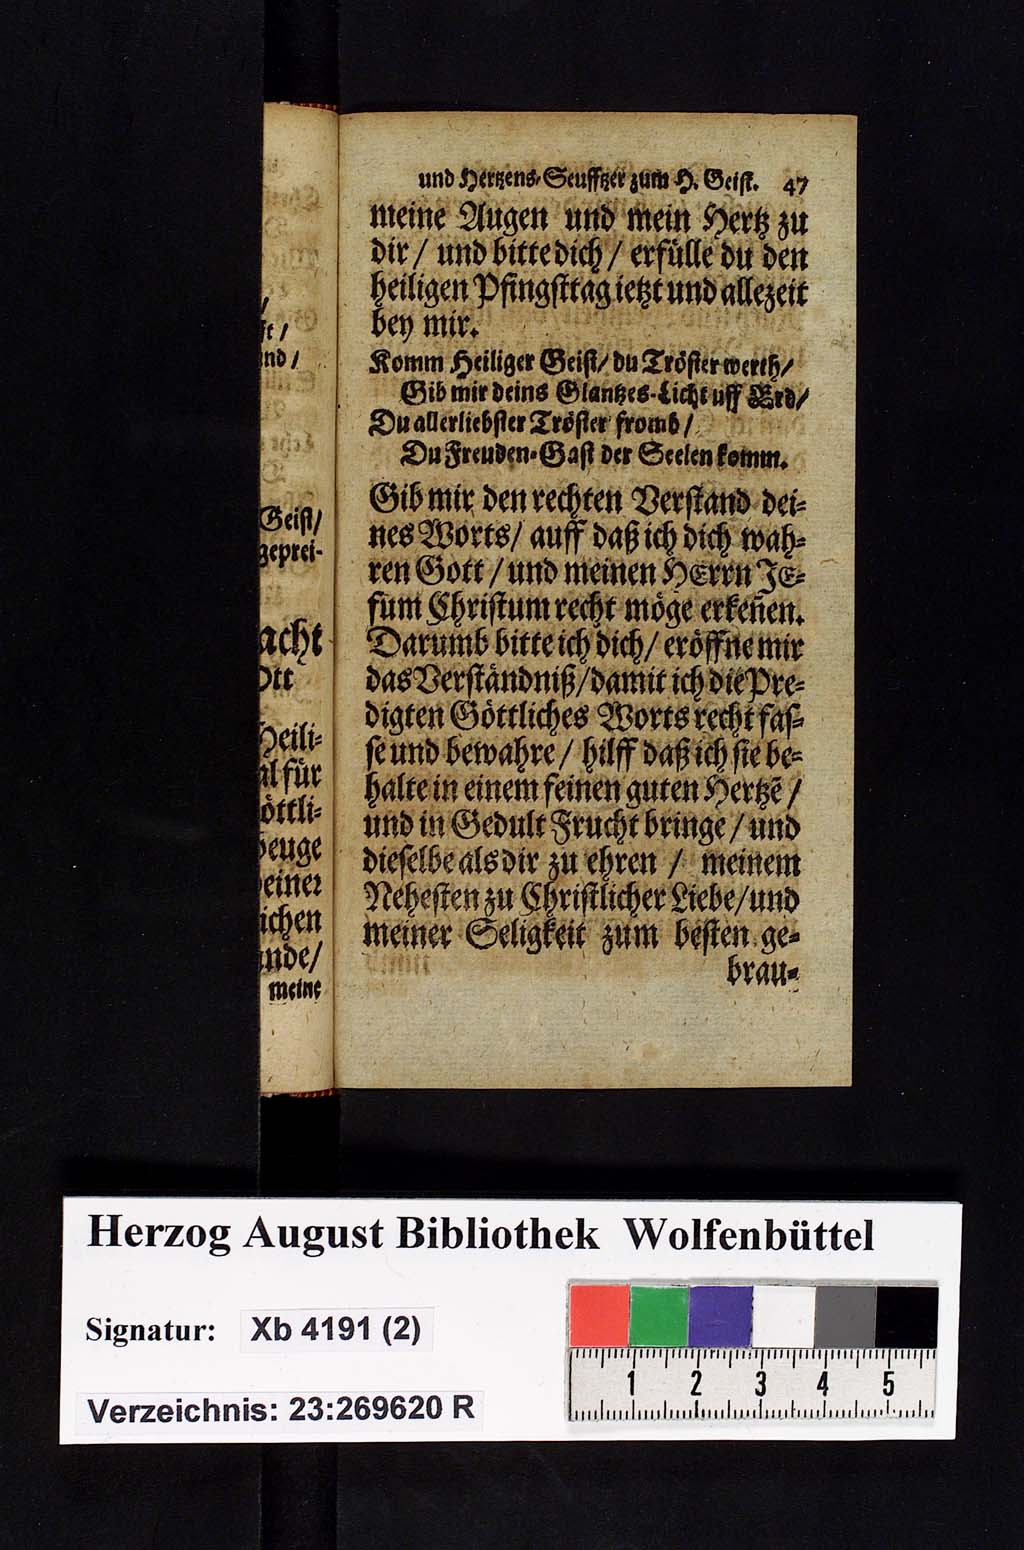 /
ft /
nd /
Geist/
geprei-
acht
Ott
Heili-
al für
öttli-
beuge
einer
ichen
nde/
meine
und Hertzens-Seufftzer zum H. Geist. 47
meine Augen und mein Hertz zu
dir / und bitte dich / erfülle du den
heiligen Pfingsttag ietzt und allezeit
bey mir.
Komm Heiliger Geist/ du Tröster werth/
Gib mir deins Glantzes-Licht uff Erd/
Du allerliebster Tröster fromb /
Du Freuden-Gast der Seelen komm.
Gib mir den rechten Verstand dei-
nes Worts/ auff daß ich dich wah-
ren Gott / und meinen HErrn JE-
sum Christum recht möge erkeñen.
Darumb bitte ich dich/ eröffne mir
das Verständniß/damit ich die Pre-
digten Göttliches Worts recht fas-
se und bewahre / hilff daß ich sie be-
halte in einem feinen guten Hertzē /
und in Gedult Frucht bringe / und
dieselbe als dir zu ehren / meinem
Nehesten zu Christlicher Liebe/und
meiner Seligkeit zum besten ge-
brau-
Herzog August Bibliothek Wolfenbüttel
Signatur: Xb 4191 (2)
Verzeichnis: 23:269620 R
1 2 3 4 5